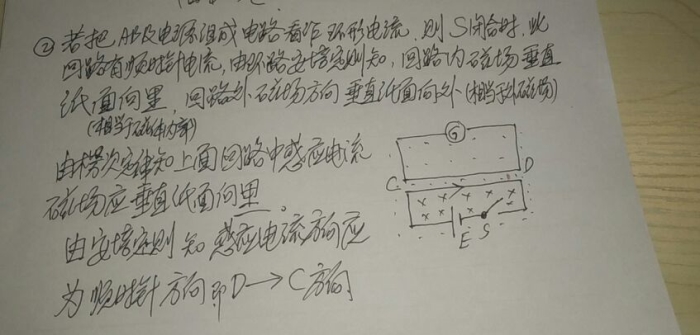 ② 若把AB及电源组成电路看作环形电流,则S闭合时,此
回路有顺时针电流,由环路安培定则知,回路内磁场垂直
纸面向里,回路外磁场方向垂直纸面向外(相当于外磁场)
(相当于磁体内部)
由楞次定律知上面回路中感应电流
磁场应垂直纸面向里。
由安培定则知感应电流方向应
为顺时针方向即D→C方向
G
C D
E S